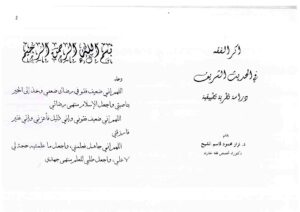 أثر الفقه
في الحديث الشريف
دراسة نظرية تطبيقية
بقلم
د. نزار محمود قاسم الشيخ
بسم الله الرحمن الرحيم
اللهم إني ضعيف فقو في رضاك ضعفي وخذ إلى الخير
بناصيتي واجعل الإسلام منتهى رضائي
اللهم إني ضعيف فقوني وإني ذليل فأعزني وإني فقير
فارزقني
اللهم إني جاهل فعلمني، واجعل ما علمتنيه حجة لي
لا علي، واجعل طلبي للعلم منتهى جهادي